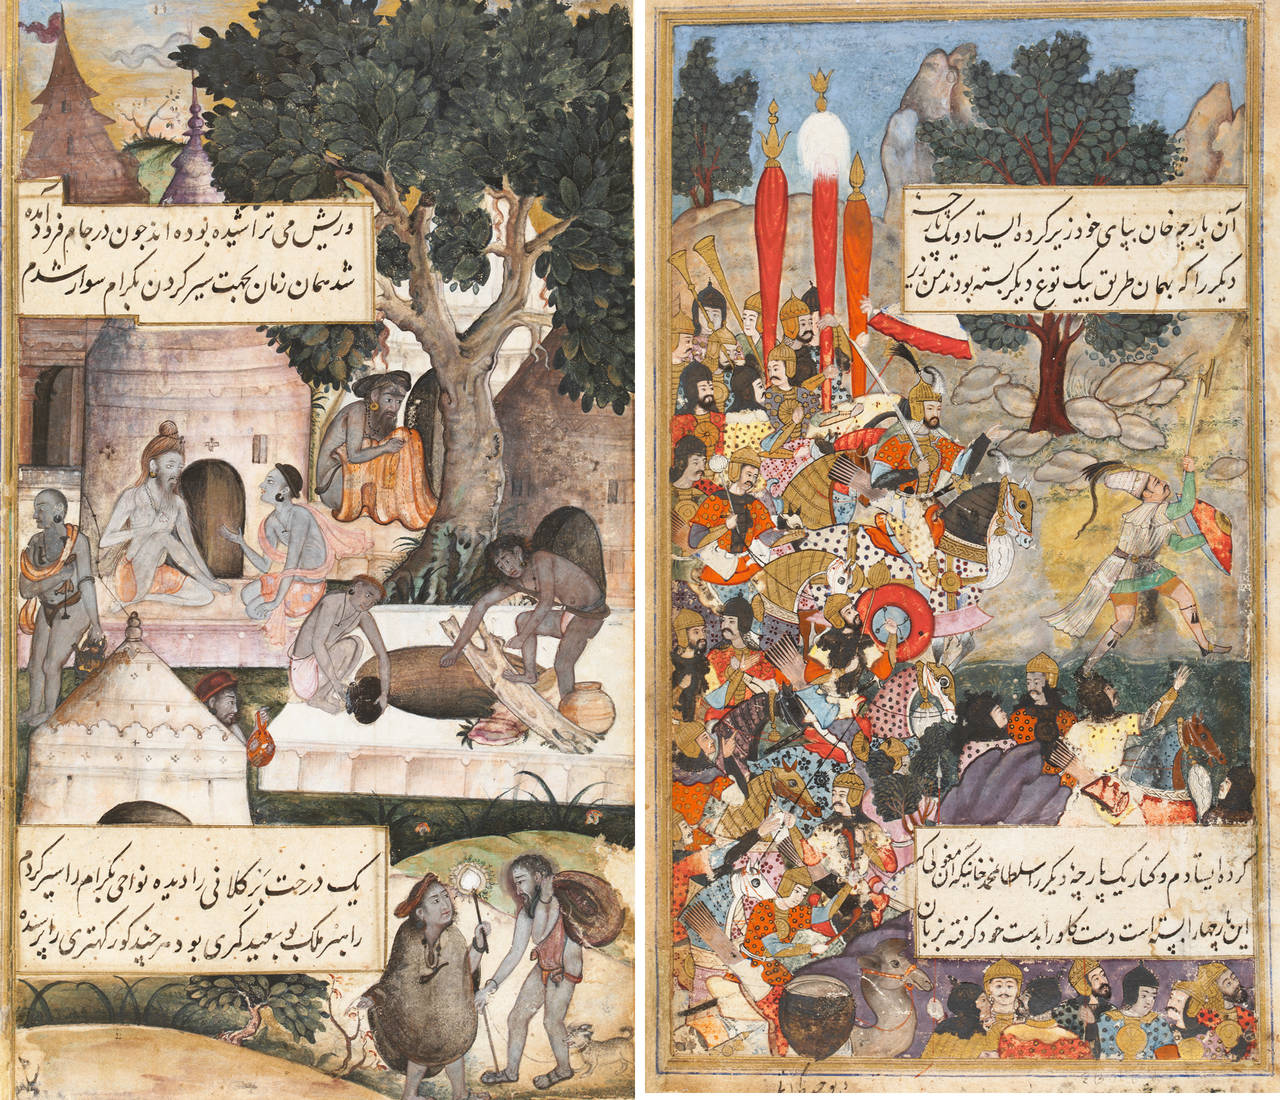 وریش می تراشیده بوده اند چون در جام فرود آمده
شد همان زمان بجهت سیر کردن بکرام سوار شدم
یک درخت بزرکلانی را دیده نواحی بکرام را سیر کردم
راهبر ملک بو سعید کمری بود هر چند کورکهتری را پرسیده
آن پارچه خان بپای خود زیر کرده ایستاد و یک پارچه
دیکر را که بهمان طریق بیک توغ دیکر بسته بودند من زیر
کرده ایستادم و کنار یک پارچهٔ دیکر را سلطان محمد خانیکه آن مغولی که
این پارچها را بسته است دست کاو را بدست خود کرفته بزبان